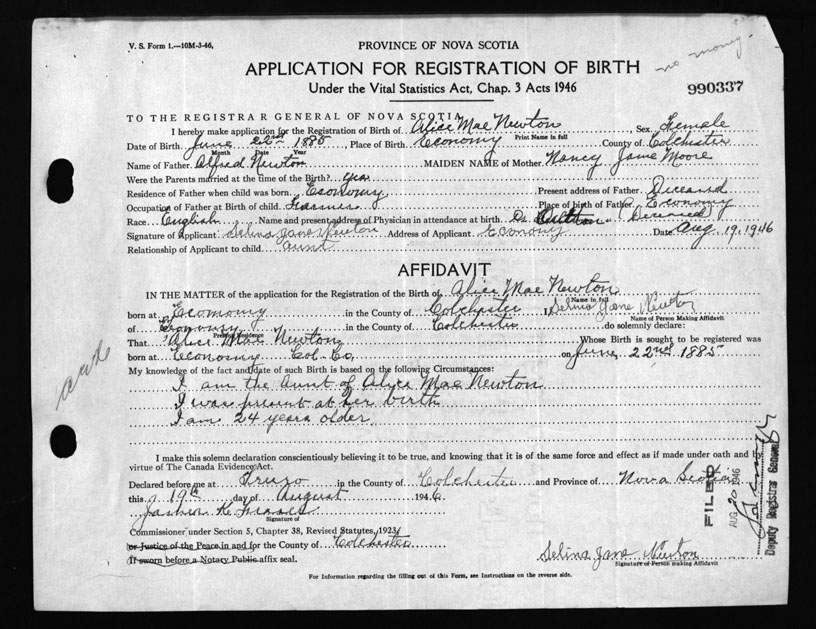 V. S. Form 1.—10M-3-46,
PROVINCE OF NOVA SCOTIA
no money.
APPLICATION FOR REGISTRATION OF BIRTH
Under the Vital Statistics Act, Chap. 3 Acts 1946
990337
TO THE REGISTRAR GENERAL OF NOVA SCOTIA
I hereby make application for the Registration of Birth of Alice Mae Newton, Sex Female
Print Name in full
Date of Birth June 22nd 1885, Place of Birth Economy County of Colchester
Month Date Year
Name of Father Alfred Newton MAIDEN NAME of Mother Nancy Jane Moore
Were the Parents married at the time of the Birth? yes
Residence of Father when child was born Economy Present address of Father Deceased
Occupation of Father at Birth of child Farmer Place of birth of Father Economy
Race English Name and present address of Physician in attendance at birth Dr. (Deceased)
Signature of Applicant Selina Jane Newton Address of Applicant Economy Date Aug. 19, 1946
Relationship of Applicant to child aunt
AFFIDAVIT
IN THE MATTER of the application for the Registration of Birth of Alice Mae Newton
Name in full
born at Economy in the County of Colchester I, Selina Jane Newton
Name of Person Making Affidavit
of Economy in the County of Colchester do solemnly declare:
Present Residence
That Alice Mae Newton Whose Birth is sought to be registered was
born at Economy Col. Co, on June 22nd 1885
My knowledge of the fact and/date of such Birth is based on the following Circumstances:
I am the aunt of Alice Mae Newton
I was present at her birth
I am 24 years older
I make this solemn declaration conscientiously believing it to be true, and knowing that it is of the same force and effect as if made under oath and by
virtue of The Canada Evidence Act.
Declared before me at Truro in the County of Colchester and Province of Nova Scotia
this 19th day of August 1946.
Signature of
Commissioner under Section 5, Chapter 38, Revised Statutes, 1923
or Justice of the Peace in and for the County of Colchester
If sworn before a Notary Public affix seal.
Selina Jane Newton
Signature of Person making Affidavit
For Information regarding the filling out of this Form, see Instructions on the reverse side.
FILED
AUG 20 1946
Deputy Registrar General